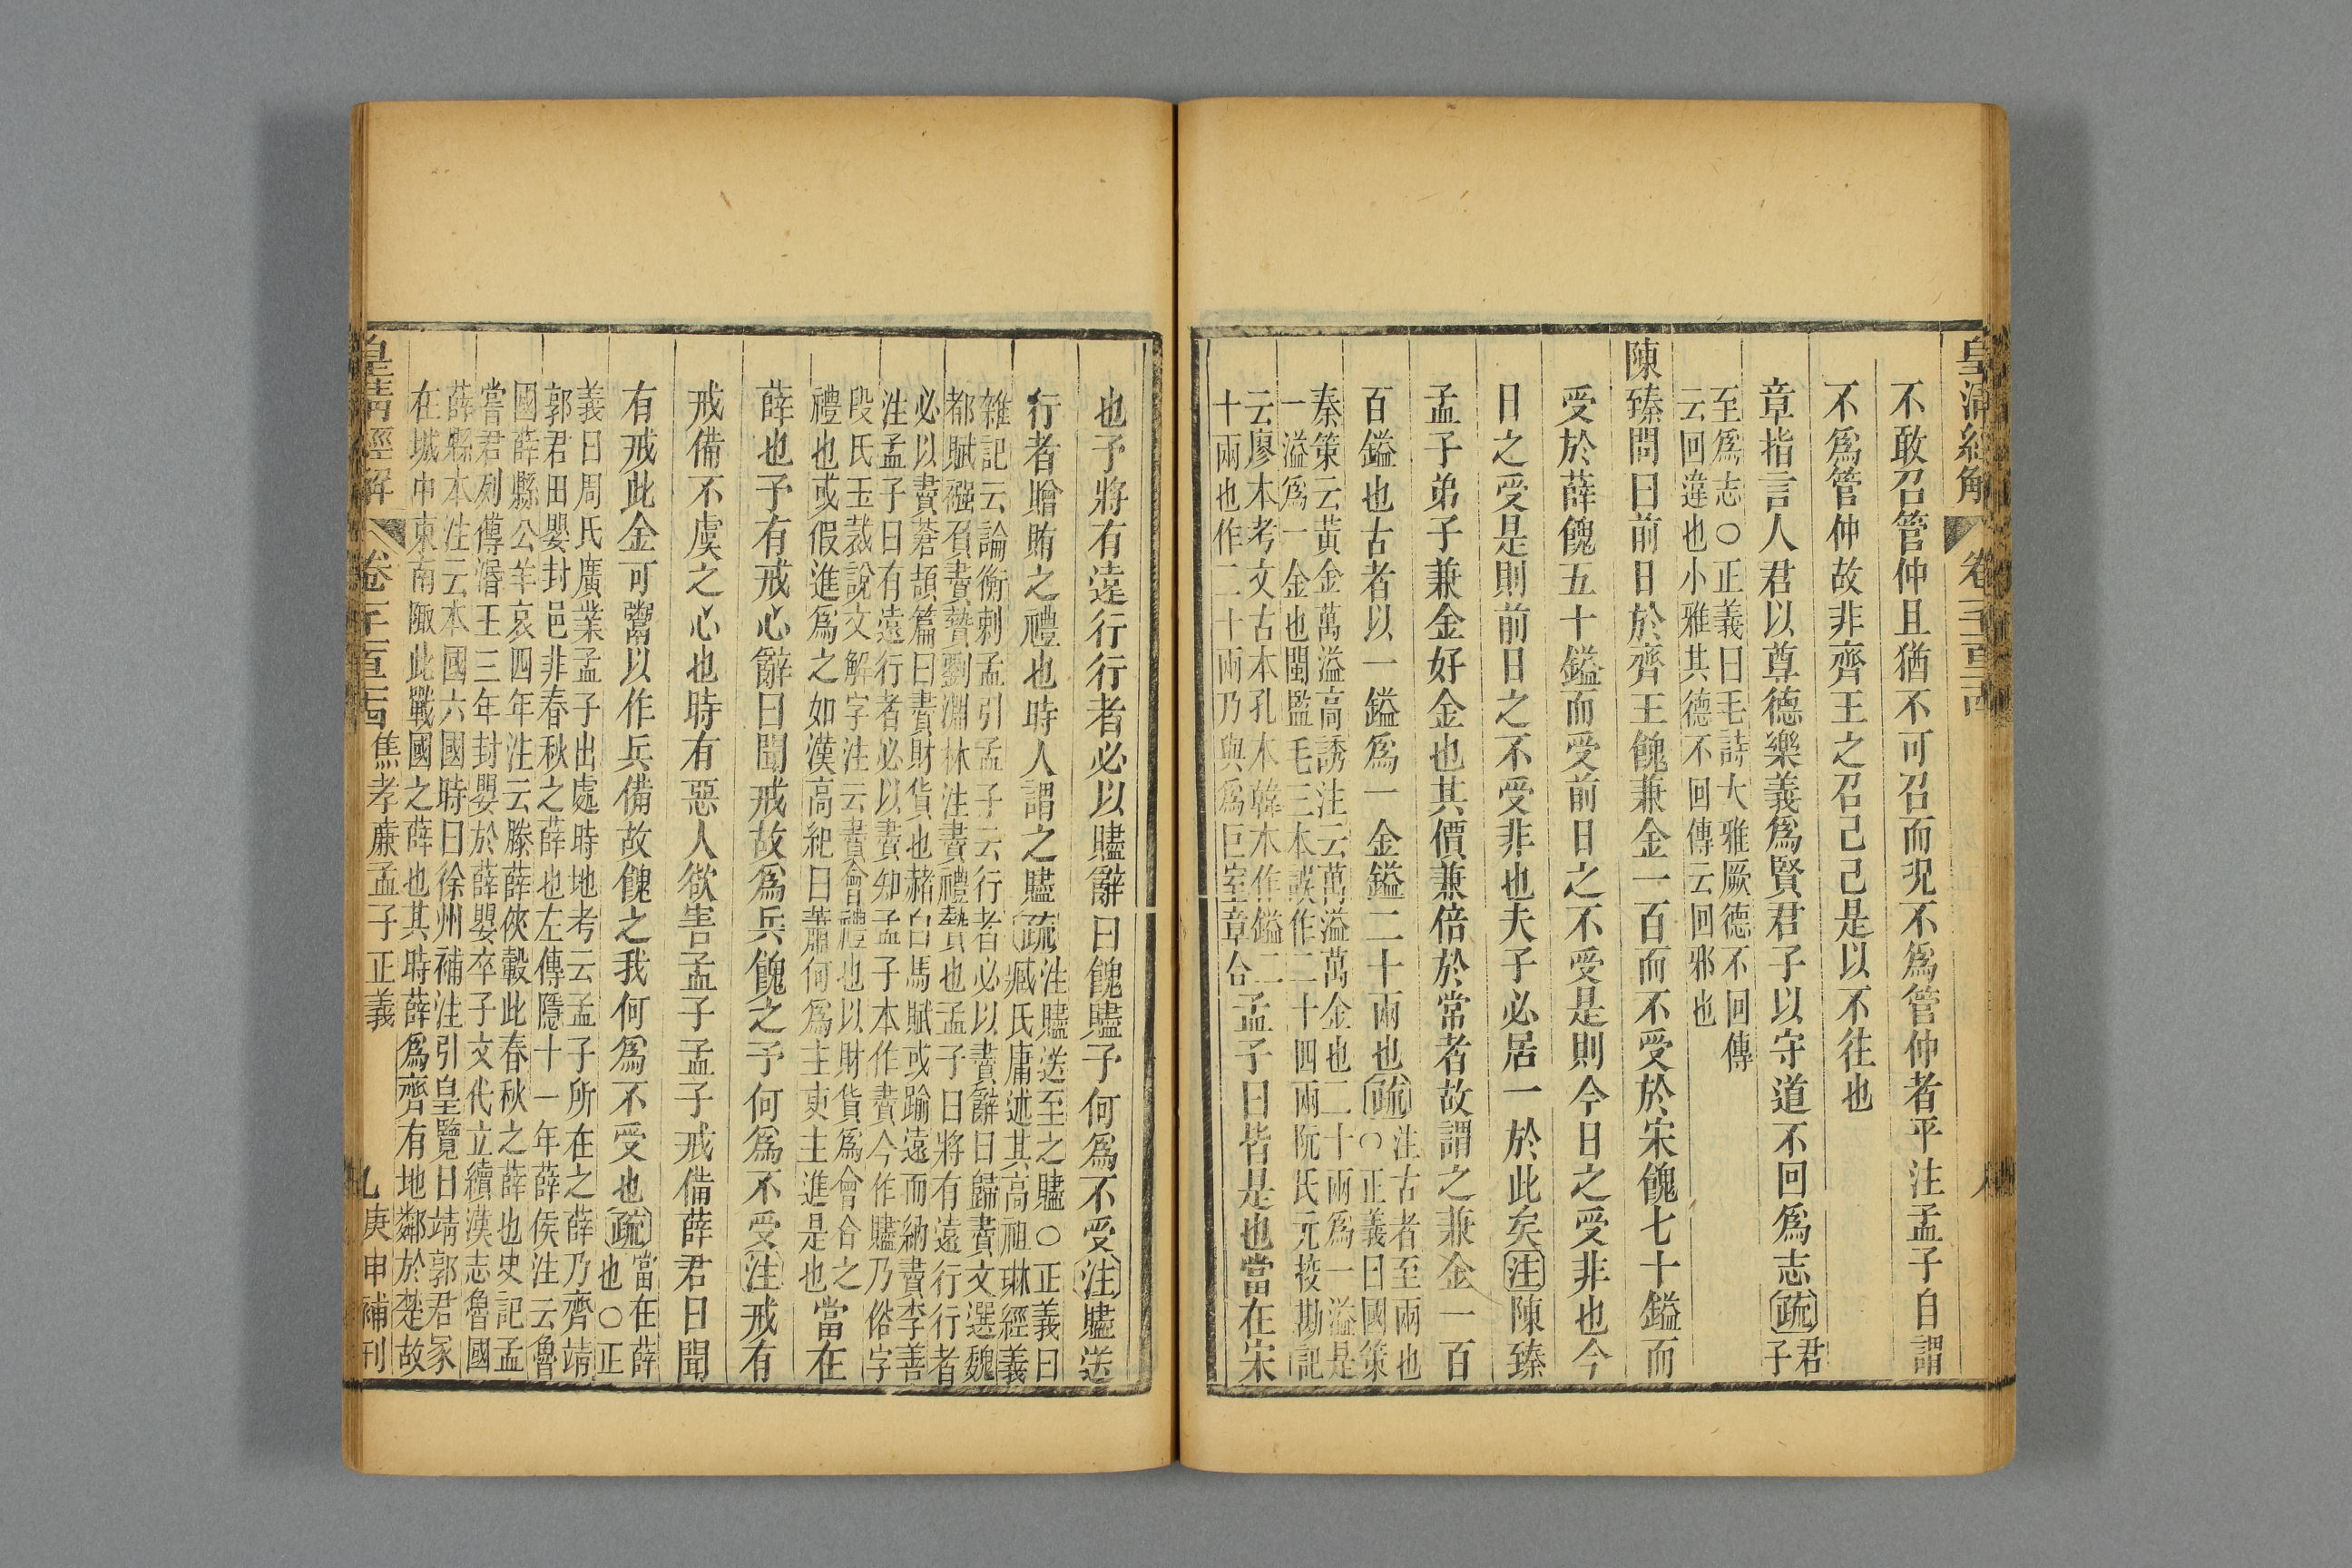 皇清經解
卷千百
八
不敢召管仲且猶不可召而況不爲管仲者乎注孟子自謂
不爲管仲故非齊王之召己己是以不往也
章指言人君以尊德樂義爲賢君子以守道不回爲志疏君
子
至爲志○正義曰毛詩大雅厥德不回傳
云回違也小雅其德不回傳云回邪也
陳臻問曰前日於齊王餽兼金一百而不受於宋餽七十鎰而
受於薛餽五十鎰而受前日之不受是則今日之受非也今
日之受是則前日之不受非也夫子必居一於此矣注陳臻
孟子弟子兼金好金也其價兼倍於常者故謂之兼金一百
百鎰也古者以一鎰爲一金鎰二十兩也疏注古者至兩也
○正義曰國策
秦策云黃金萬溢高誘注云萬溢萬金也二十兩爲一溢是
一溢爲一金也閩監毛三本誤作二十四兩阮氏元挍勘記
云廖本考文古本孔本韓本作鎰二
十兩也作二十兩乃與爲巨室章合孟子曰皆是也當在宋
也予將有遠行行者必以贐辭曰餽贐予何爲不受注贐送
行者贈賄之禮也時人謂之贐疏注贐送至之贐○正義曰
臧氏庸述其高祖琳經義
雜記云論衡刺孟引孟子云行者必以賮辭曰歸賮文選魏
都賦襁負賮贄劉淵林注賮禮贄也孟子曰將有遠行行者
必以賮蒼頡篇曰賮財貨也赭白馬賦或踰遠而納賮李善
注孟子曰有遠行者必以賮知孟子本作賮今作贐乃俗字
段氏玉裁說文解字注云賮會禮也以財貨爲會合之
禮也或假進爲之如漢高紀曰蕭何爲主吏主進是也當在
薛也予有戒心辭曰聞戒故爲兵餽之予何爲不受注戒有
戒備不虞之心也時有惡人欲害孟子孟子戒備薛君曰聞
有戒此金可鬻以作兵備故餽之我何爲不受也疏當在薛
也○正
義曰周氏廣業孟子出處時地考云孟子所在之薛乃齊靖
郭君田嬰封邑非春秋之薛也左傳隱十一年薛侯注云魯
國薛縣公羊哀四年注云滕薛俠轂此春秋之薛也史記孟
嘗君列傳湣王三年封嬰於薛嬰卒子文代立續漢志魯國
薛縣本注云本國六國時曰徐州補注引皇覽曰靖郭君冢
在城中東南陬此戰國之薛也其時薛爲齊有地鄰於楚故
皇清經解
卷千百
焦孝廉孟子正義
九
庚申補刊